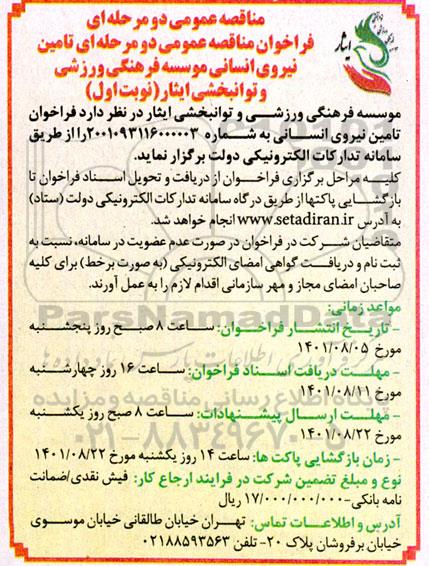 مناقصه عمومی دو مرحله ای
فراخوان مناقصه عمومی دو مرحله ای تامین
نیروی انسانی موسسه فرهنگی ورزشی
و توانبخشی ایثار (نوبت اول)
ایثار
موسسه فرهنگی ورزشی و توانبخشی ایثار در نظر دارد فراخوان
تامین نیروی انسانی به شماره ۲۰۰۱۰۹۳۱۱۶۰۰۰۰۰۳ را از طریق
سامانه تدارکات الکترونیکی دولت برگزار نماید.
کلیه مراحل برگزاری فراخوان از دریافت و تحویل اسناد فراخوان تا
بازگشایی پاکتها از طریق درگاه سامانه تدارکات الکترونیکی دولت (ستاد)
به آدرس www.setadiran.ir انجام خواهد شد.
متقاضیان شرکت در فراخوان در صورت عدم عضویت در سامانه، نسبت به
ثبت نام و دریافت گواهی امضای الکترونیکی (به صورت برخط) برای کلیه
صاحبان امضای مجاز و مهر سازمانی اقدام لازم را به عمل آورند.
مواعد زمانی:
ParsNamadData
- تاریخ انتشار فراخوان: ساعت ۸ صبح روز پنجشنبه
مورخ ۱۴۰۱/۰۸/۰۵
- مهلت دریافت اسناد فراخوان: ساعت ۱۶ روز چهارشنبه
مورخ ۱۴۰۱/۰۸/۱۱
پایگاه اطلاع رسانی مناقصه و مزایده
- مهلت ارسال پیشنهادات: ساعت ۸ صبح روز یکشنبه
مورخ ۱۴۰۱/۰۸/۲۲
۰۲۱-۸۸۳۴۹۶۷۰-۵
- زمان بازگشایی پاکت ها: ساعت ۱۴ روز یکشنبه مورخ ۱۴۰۱/۰۸/۲۲
نوع و مبلغ تضمین شرکت در فرایند ارجاع کار: فیش نقدی/ضمانت
نامه بانکی-۱۷/۰۰۰/۰۰۰/۰۰۰ ریال
آدرس و اطلاعات تماس: تهران خیابان طالقانی خیابان موسوی
خیابان برفروشان پلاک ۲۰- تلفن ۰۲۱۸۸۵۹۳۵۶۳